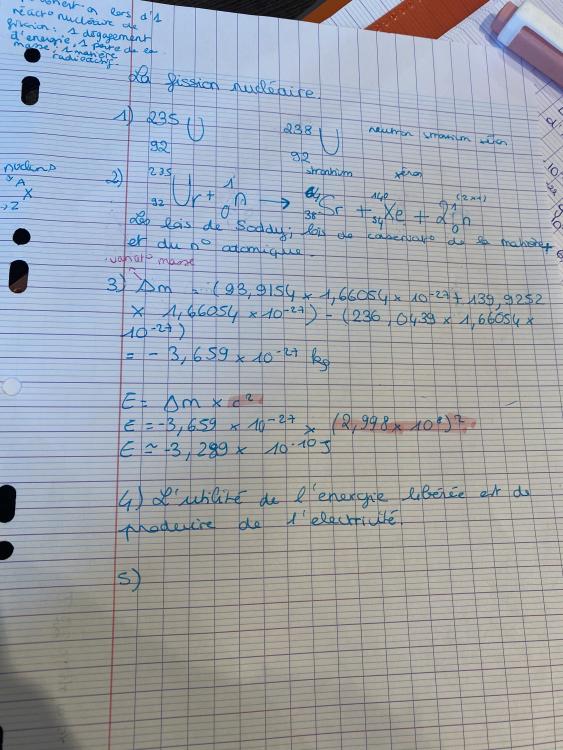 lors d'1
réact° nucléaire de
fission: 1 dégagement
d'énergie, 1 perte de
masse, 1 matière
radioactif.
La fission nucléaire.
1) 235 U 92
238 U 92
neutron strontium xénon
strontium xénon
nucléons
A
X
Z
2) 235 92 Ur + 1 0 n → 94 38 Sr + 140 54 Xe + 2 1 0 n
(2×1)
Les lois de Soddy: lois de conservat° de la matière
et du n° atomique.
variat° masse
3) Δm = (93,9154 × 1,66054 × 10⁻²⁷ + 139,9252
× 1,66054 × 10⁻²⁷) - (236,0439 × 1,66054 ×
10⁻²⁷)
= - 3,659 × 10⁻²⁷ kg
E = Δm × c²
E = -3,659 × 10⁻²⁷ × (2,998 × 10⁸)²
E ≃ -3,289 × 10⁻¹⁰ J
4) L'utilité de l'énergie libérée est de
produire de l'électricité
5)